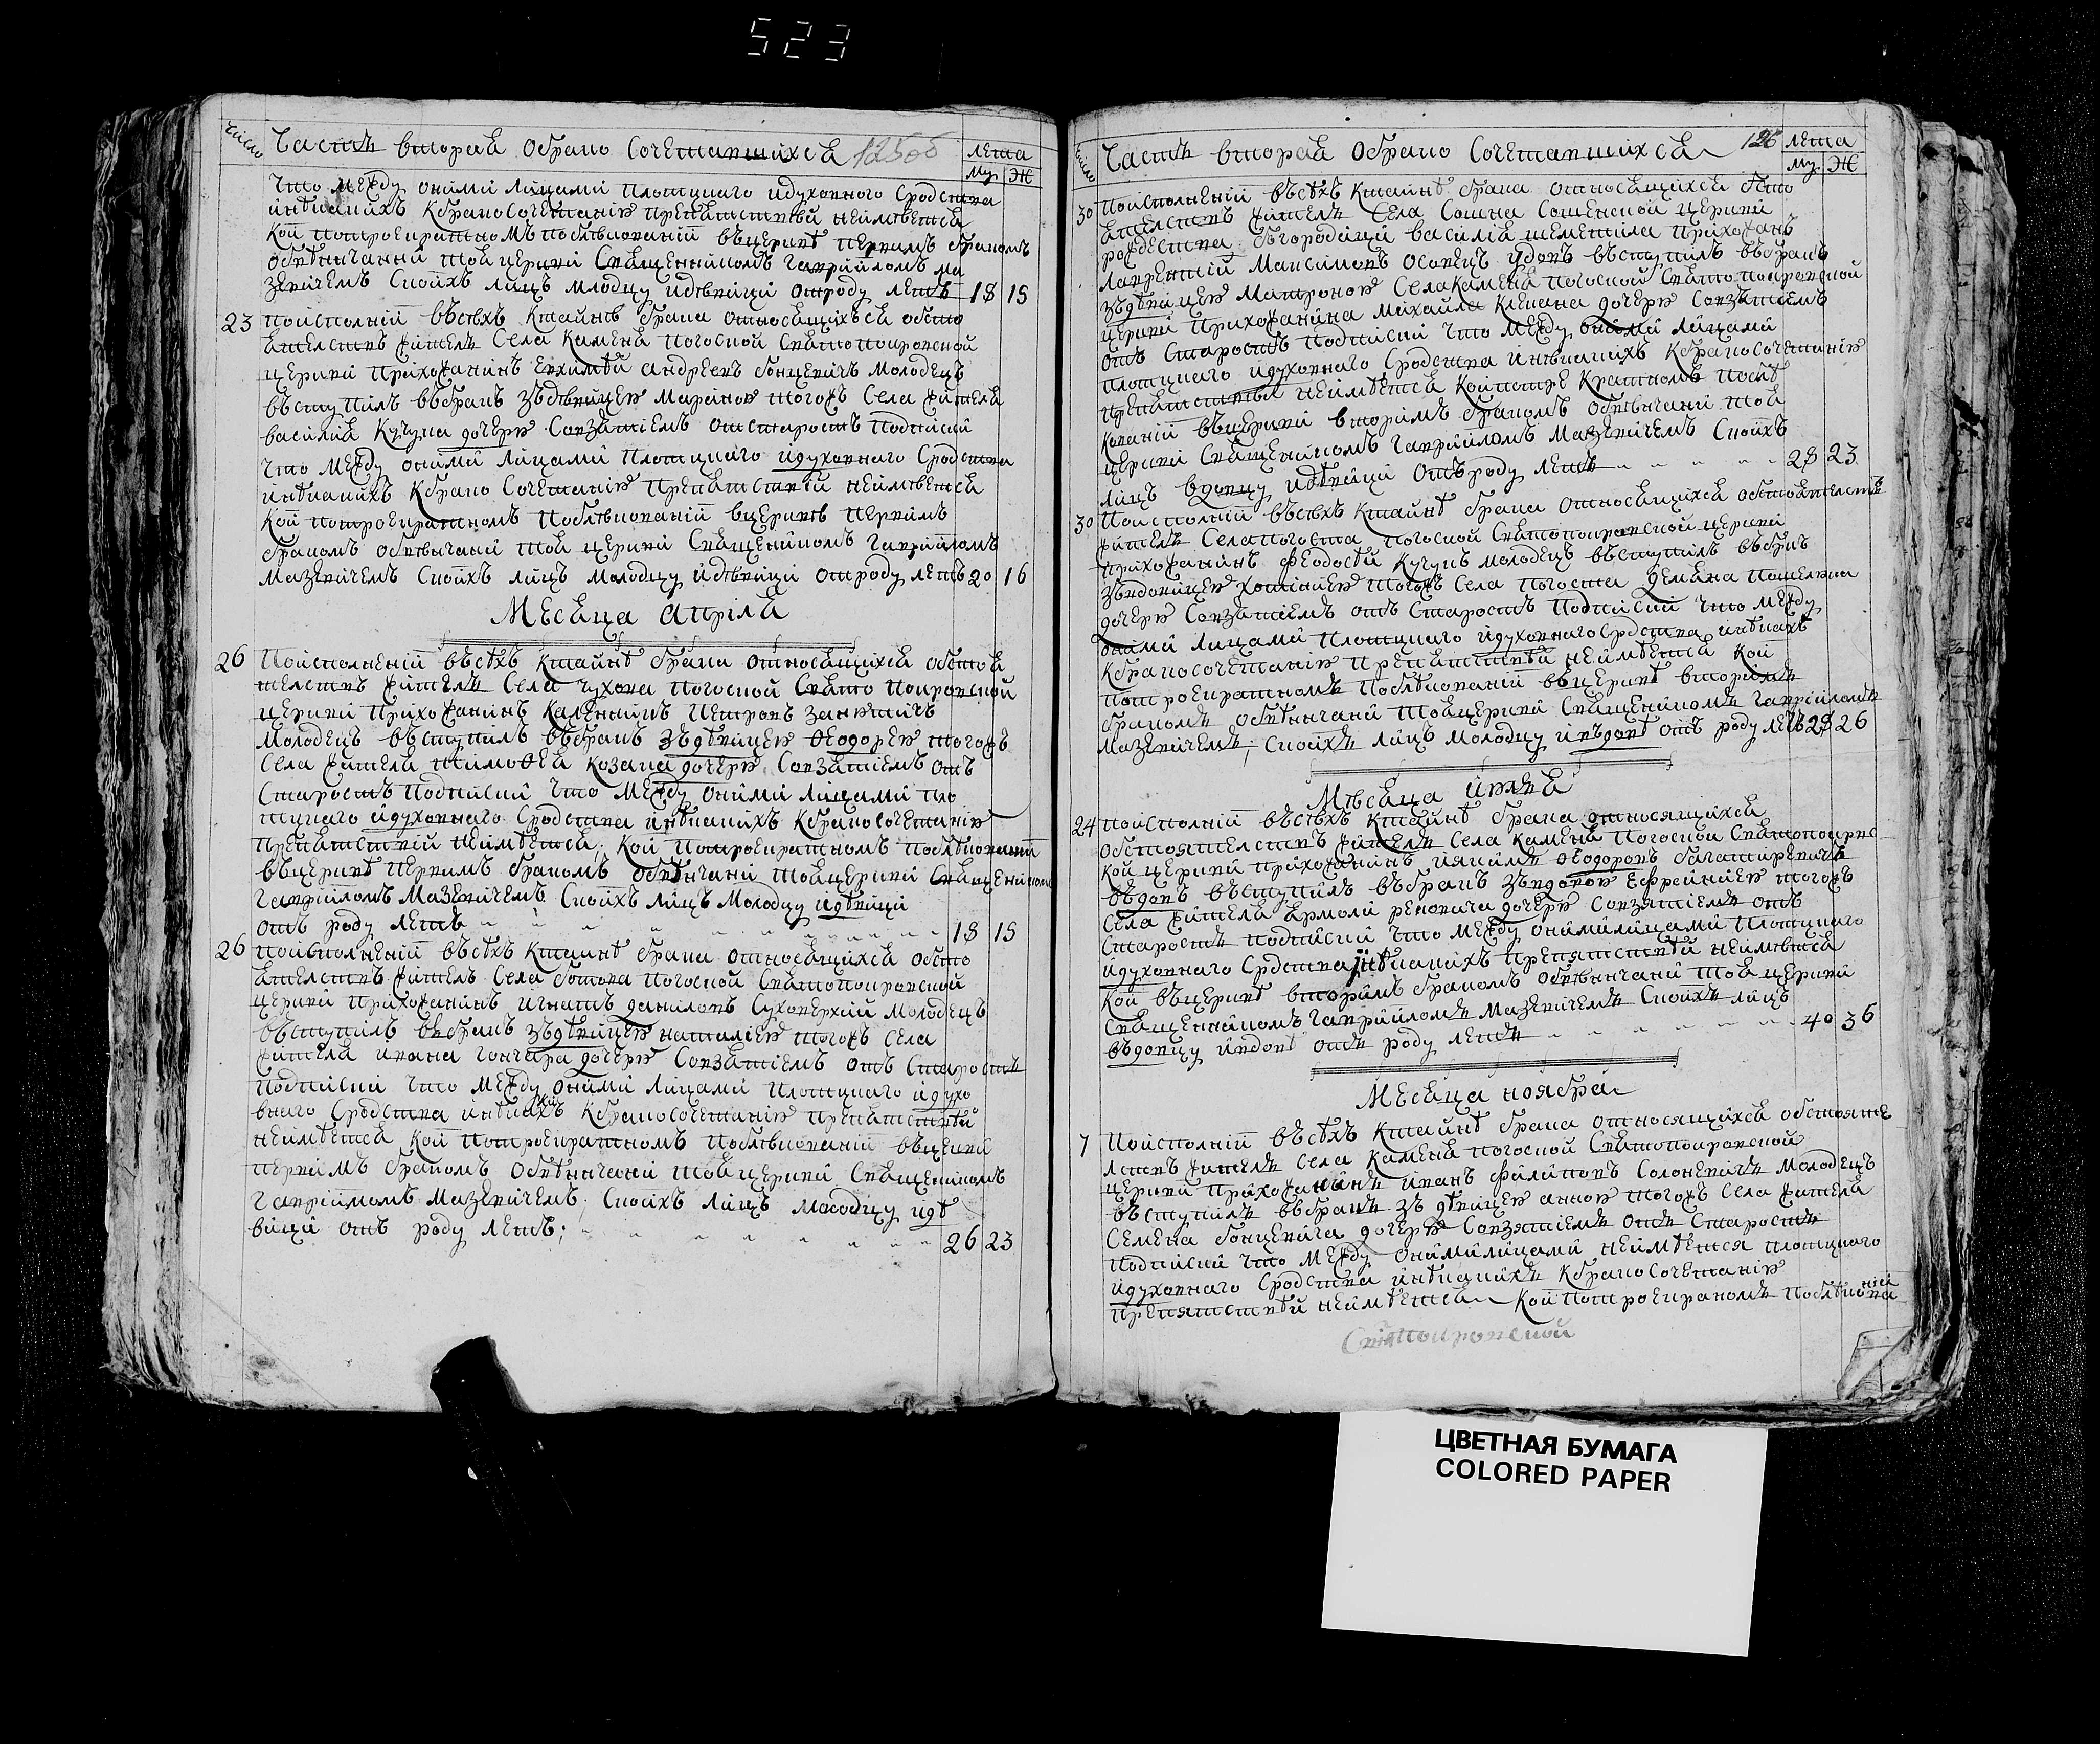 523
число
Часть вторая Обрако Сочетавшихся 125об
лета
Му Ж
Что между оними лицами плотцкаго идуховного Сродства
инвиакихъ Кбракосочетанію препятствій неимѣется
Кой потроекратномъ поблѣкованіи въцерквѣ первимъ бракомъ
обвѣнчанни тоя церкви Священникомъ Гаврійломъ ма
зевичемъ Своихъ лицъ млодцу идѣвици отроду летъ 18 15
23 Поисполнііи въсѣхъ Ктайнѣ брака относящихъся обсто
ятелствъ житель Села Каменя погоской Святопокровской
церкви прихожанинъ Евхимѣй андреевъ Гонцевичъ молодецъ
въступилъ въбракъ зъдѣвицею Мариною тогожъ Села жителя
василия Кучука дочерю Совзятіемъ отстаростъ подписки
что между оними лицами плотцкаго идуховного Сродства
инвиакихъ Кбрако Сочетанію препятствій неимѣется
Кой потроекратномъ поблѣкованіи вцерквѣ первимъ
бракомъ обвѣнчани тоя церкви Священикомъ Гавріиломъ
мазевичемъ Своихъ лицъ молодцу идѣвици отроду летъ 20 16
Месяца Апріля
26 Поисполненіи въсѣхъ Ктайнѣ брака относящихся обстоя
телствъ житель Села Чухова погоской Свято покровской
церкви прихожанинъ Каленикъ петровъ занкѣвичъ
молодецъ въступилъ въбракъ зъдѣвицею Ѳеодорею тогожъ
Села жителя тимоѳея Козака дочерю Совзятіемъ отъ
Старостъ подписки что между оними лицами пло
тцкаго идуховного Сродства инвиакихъ Кбракосочетанію
препятствій неимѣется, Кой потроекратномъ поблѣкованіи
въцерквѣ первимъ бракомъ обвѣнчани тояцеркви Священикомъ
Гавріиломъ Мазевичемъ Своихъ лицъ Молодцу идѣвици
отъ роду летъ 18 15
26 Поисполненіи въсѣхъ Ктаинѣ брака относящихся обсто
ятелствъ житель Села ботова погоской Святопокровской
церкви прихожанинъ игнатъ даниловъ Суховерхій молодецъ
въступилъ въбракъ зъдѣвицею наталією тогожъ Села
жителя ивана гончара дочерю Совзятіемъ отъ Старостъ
подписки что между оними лицами плотцкаго идухо
вного Сродства инвиакихъ Кбракосочетанію препятствій
неимѣется Кой потроекратномъ поблѣкованіи въцеркви
первимъ бракомъ обвѣнчани тоя церкви Священикомъ
Гавріиломъ Мазевичемъ, Своихъ лицъ молодцу идѣ
вици отъ роду летъ; 26 23
число
Часть вторая Обрако Сочетавшихся 126
лета
Му Ж
30 Поисполненіи въсѣхъ Ктайнѣ брака относящихся обсто
ятелствъ житель Села Сошна Сошенской церкви
рождества богородици василія шеметила прихожанъ
лаврентій Максимовъ осовецъ вдовъ въступилъ въбракъ
зъдѣвицею Матроною Села Каменя погоской Святопокровской
церкви прихожанина михайла Клевана дочерю Совзятіемъ
отъ Старостъ подписки что между оними лицами
плотцкаго идуховного Сродства инвиакихъ Кбракосочетанію
препятствій неимѣется Койпотре Кратномъ поблѣ
кованіи въцеркви вторимъ бракомъ обвѣнчани тоя
церкви Священикомъ Гавріиломъ Мазевичемъ Своихъ
лицъ вдовцу идѣвици отъроду летъ 28 23
30 Поисполніи въсѣхъ Ктайнѣ брака относящихся обстоятелствъ
житель Селапогоста погоской Святопокровской церкви
прихожанинъ Феодосѣй Кучукъ молодецъ въступилъ въбракъ
зъвдовицею хотинією тогожъ Села погоста демяна
дочерю Совзятіемъ отъ Старостъ подписки что между
оними лицами плотцкаго идуховногоСрдства инвиакъ
Кбракосочетанію препятствій неимѣется Кой
потроекратномъ поблѣкованіи въцерквѣ вторимъ
бракомъ обвѣнчани тояцеркви Священикомъ Гавріиломъ
Мазевичемъ; Своихъ лицъ молодцу ивъдовѣ отъ роду летъ 28 26
Мѣсяца июля
24 Поисполніи въсѣхъ Ктайнѣ брака относящихся
обстоятелствъ житель Села Каменя погоской Святопокров
ской церкви прихожанинъ иякимъ Ѳеодоровъ багатиревичъ
въдовъ въступилъ въбракъ зъвдовою Ефрейнією тогожъ
Села жителя ярмоли реновича дочерю Совзятіемъ отъ
Старостъ подписки что между онимилицами плотцкаго
идуховного Срдства инвиакихъ препятствій неимѣется
Кой въцерквѣ вторимъ бракомъ обвѣнчани тоя церкви
Священникомъ Гавріиломъ Мазевичемъ Своихъ лицъ
въдовцу ивдовѣ отъ роду летъ 40 36
Месяца ноября
7 Поисполніи въсѣхъ Ктайнѣ брака относящихся обстояте
лствъ житель Села Каменя погоской Святопокровской
церкви прихожанинъ иванъ филиповъ Солоневичъ молодецъ
въступилъ въбракъ зъ дѣвицею анною тогожъ Села жителя
Семена Гонцевича дочерю Совзятіемъ отъ Старостъ
подписки что между онимилицами неимѣется плотцкаго
идуховного Сродства инвиакихъ Кбракосочетанію
препятствій неимѣется Кой потроекраномъ поблѣкованіи
Святпокровской
ЦВЕТНАЯ БУМАГА
COLORED PAPER